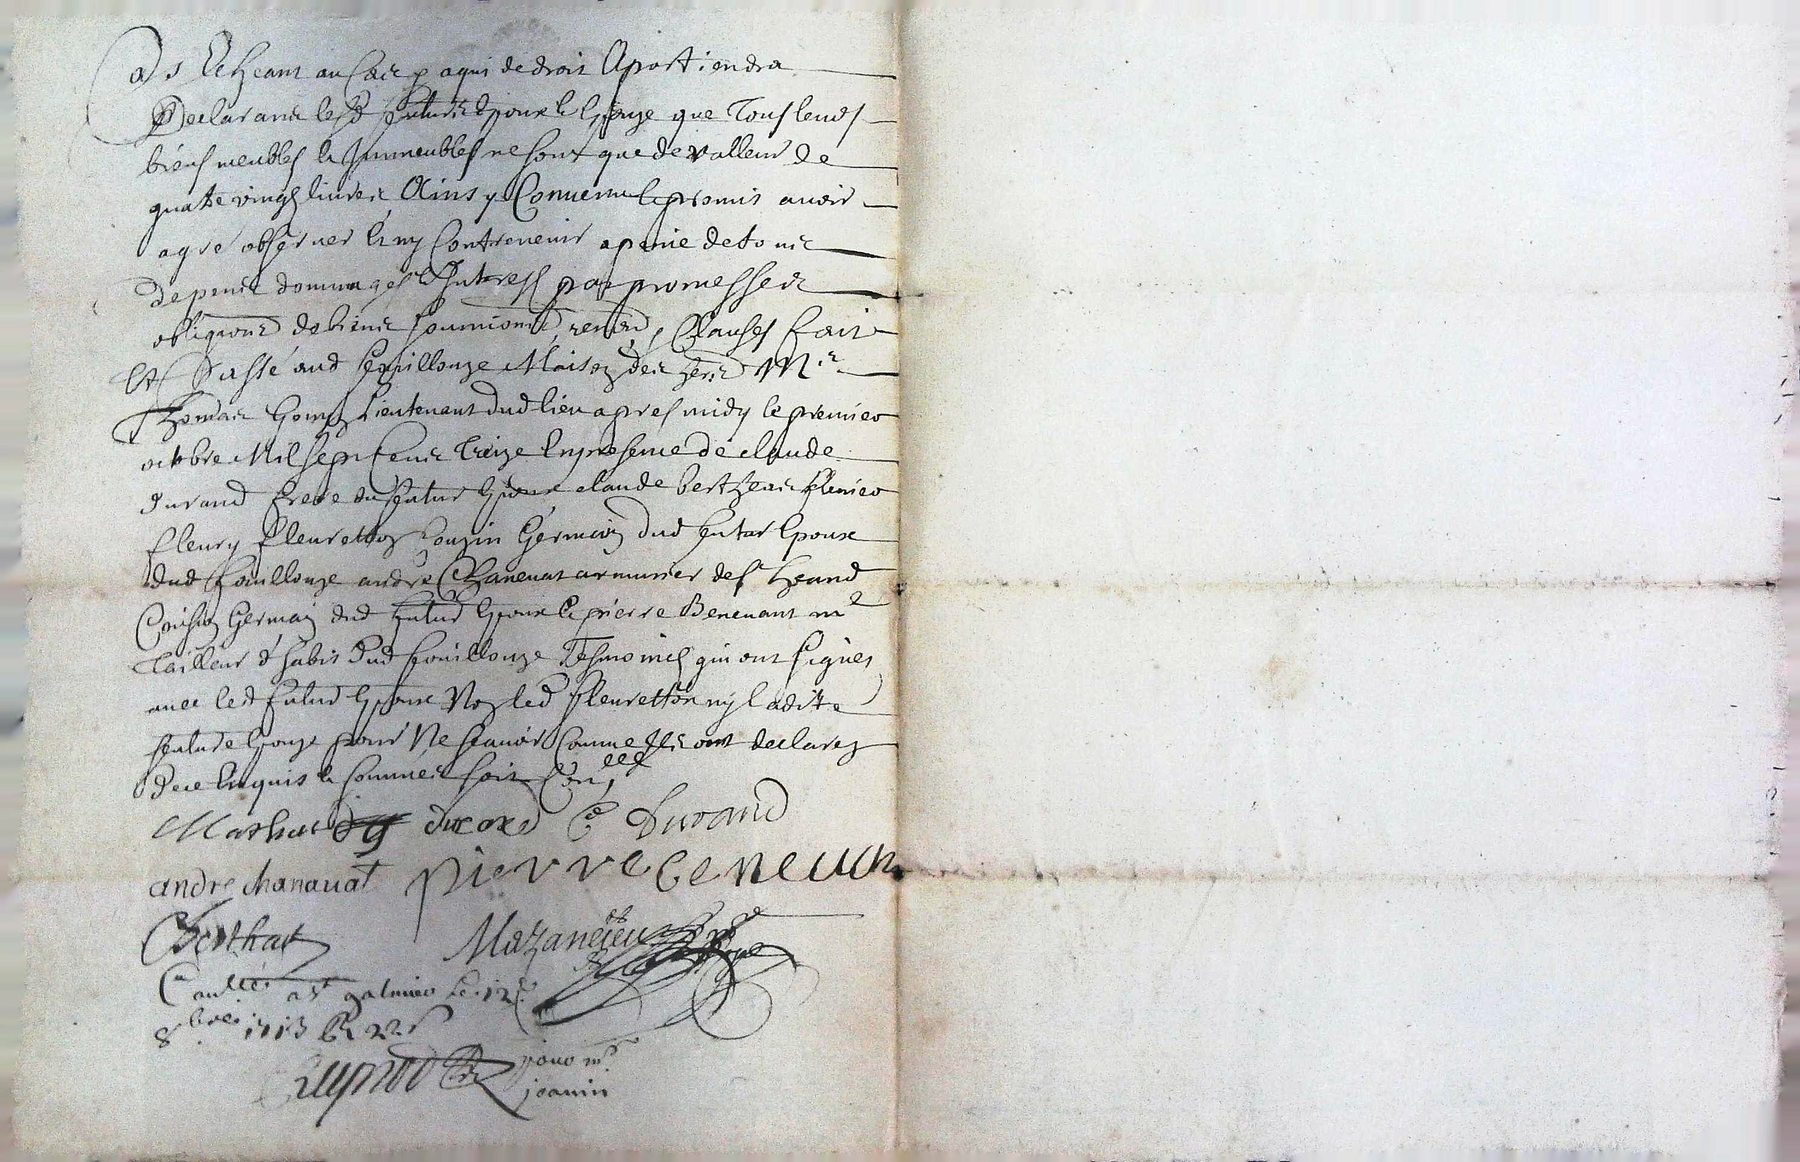 Escheant au cas p aqui de droit Apartiendra
Declarant lesd futurs Epoux & Epouze que Tous leurs
biens meubles & Immeubles ne sont que de valleur de
quatre vingt livres Ainsy Convenu & promis avoir
agré observer & ny Contrevenir a peine de tous
depens dommages & Interests par promesses
obligaons de biens soumions renons & Clauses fait
Et Passé aud feuillouze Maison des hers Mre
Thomas Gonyn Lieutenant dud lieu apres midy le premier
octobre Mil sept cents treize En presence de claude
durand frere du futur Epoux claude bertheas
fleury fleuretton Cousin Germain dud futur Epoux
dud fouillouze andré Chanavat armurier de St heand
Cousin Germain dud futur Epoux & pierre Benevant me
Tailleur d'habis dud fouillouze Tesmoins qui ont signés
avec led futur Epoux Non led fleuretton ny ladite
future Epouze pour Ne scavoir Comme Ils ont declarez
de ce Enquis & sommes soit Con.lle
durand Ce Durand
andre chanavat pierre beneva
Berthas Mazaneieu
Conllé a St galmier le 12e
8bre 1713 R 22 s
pour me
joanin